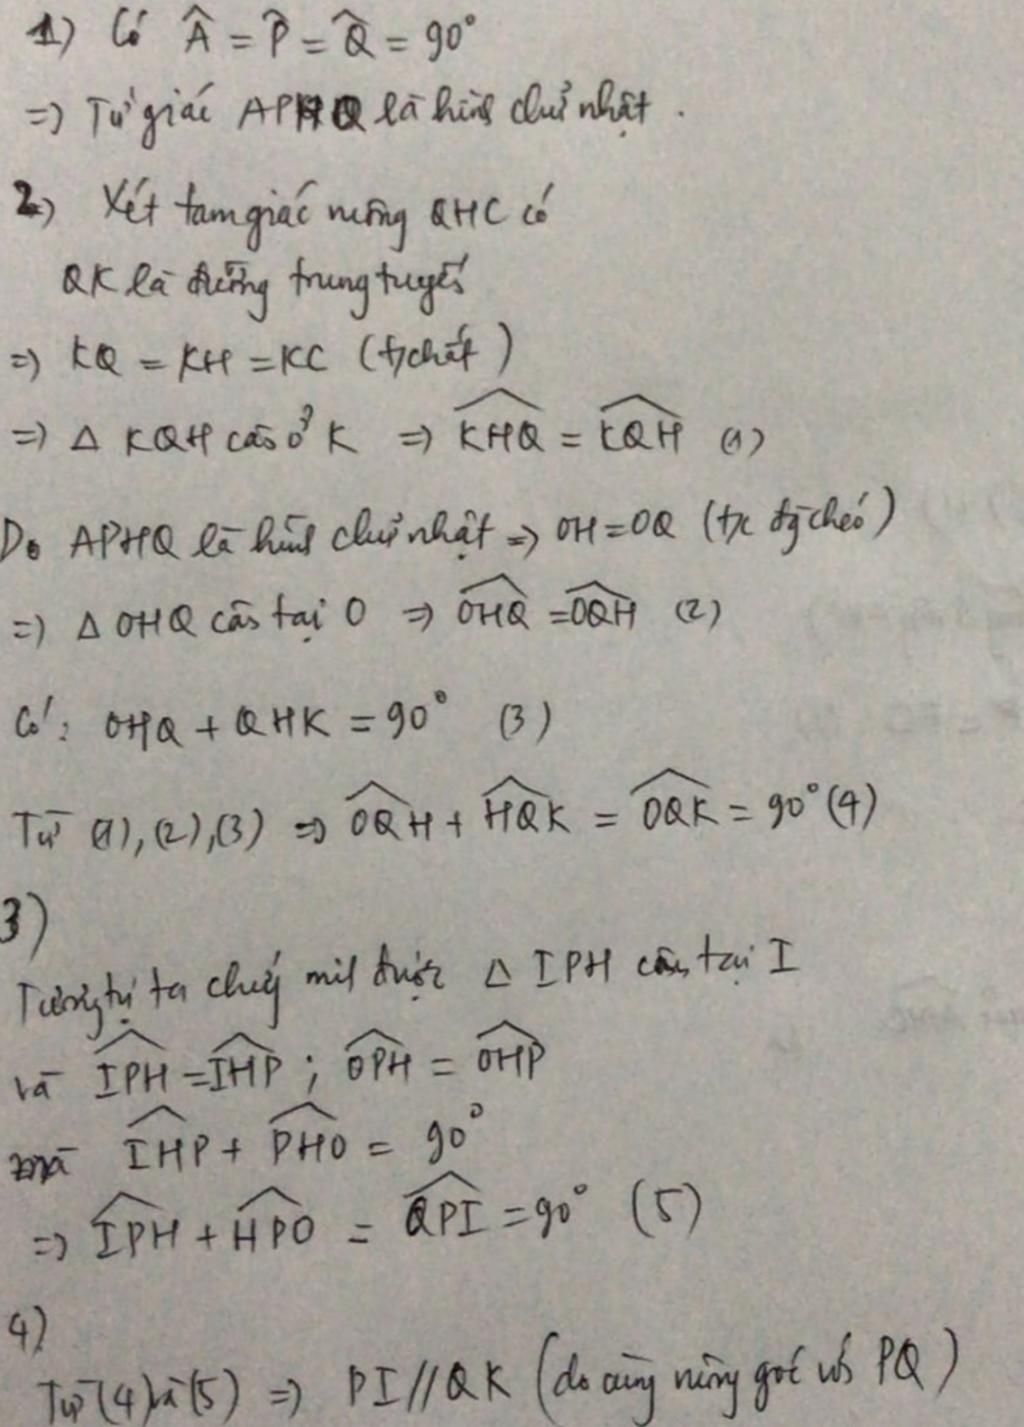 1) Có Â = P̂ = Q̂ = 90°
=> Tứ giác APHQ là hình chữ nhật.
2) Xét tam giác vuông QHC có
QK là đường trung tuyến
=> KQ = KH = KC (t/chất)
=> Δ KQH cân ở K => \widehat{KHQ} = \widehat{KQH} (1)
Do APHQ là hình chữ nhật => OH = OQ (t/c đg chéo)
=> Δ OHQ cân tại O => \widehat{OHQ} = \widehat{OQH} (2)
Có: OHQ + QHK = 90° (3)
Từ (1), (2), (3) => \widehat{OQH} + \widehat{HQK} = \widehat{OQK} = 90° (4)
3)
Tương tự ta chứng minh được Δ IPH cân tại I
và \widehat{IPH} = \widehat{IHP} ; \widehat{OPH} = \widehat{OHP}
mà \widehat{IHP} + \widehat{PHO} = 90°
=> \widehat{IPH} + \widehat{HPO} = \widehat{QPI} = 90° (5)
4)
Từ (4) và (5) => PI // QK (do cùng vuông góc với PQ)